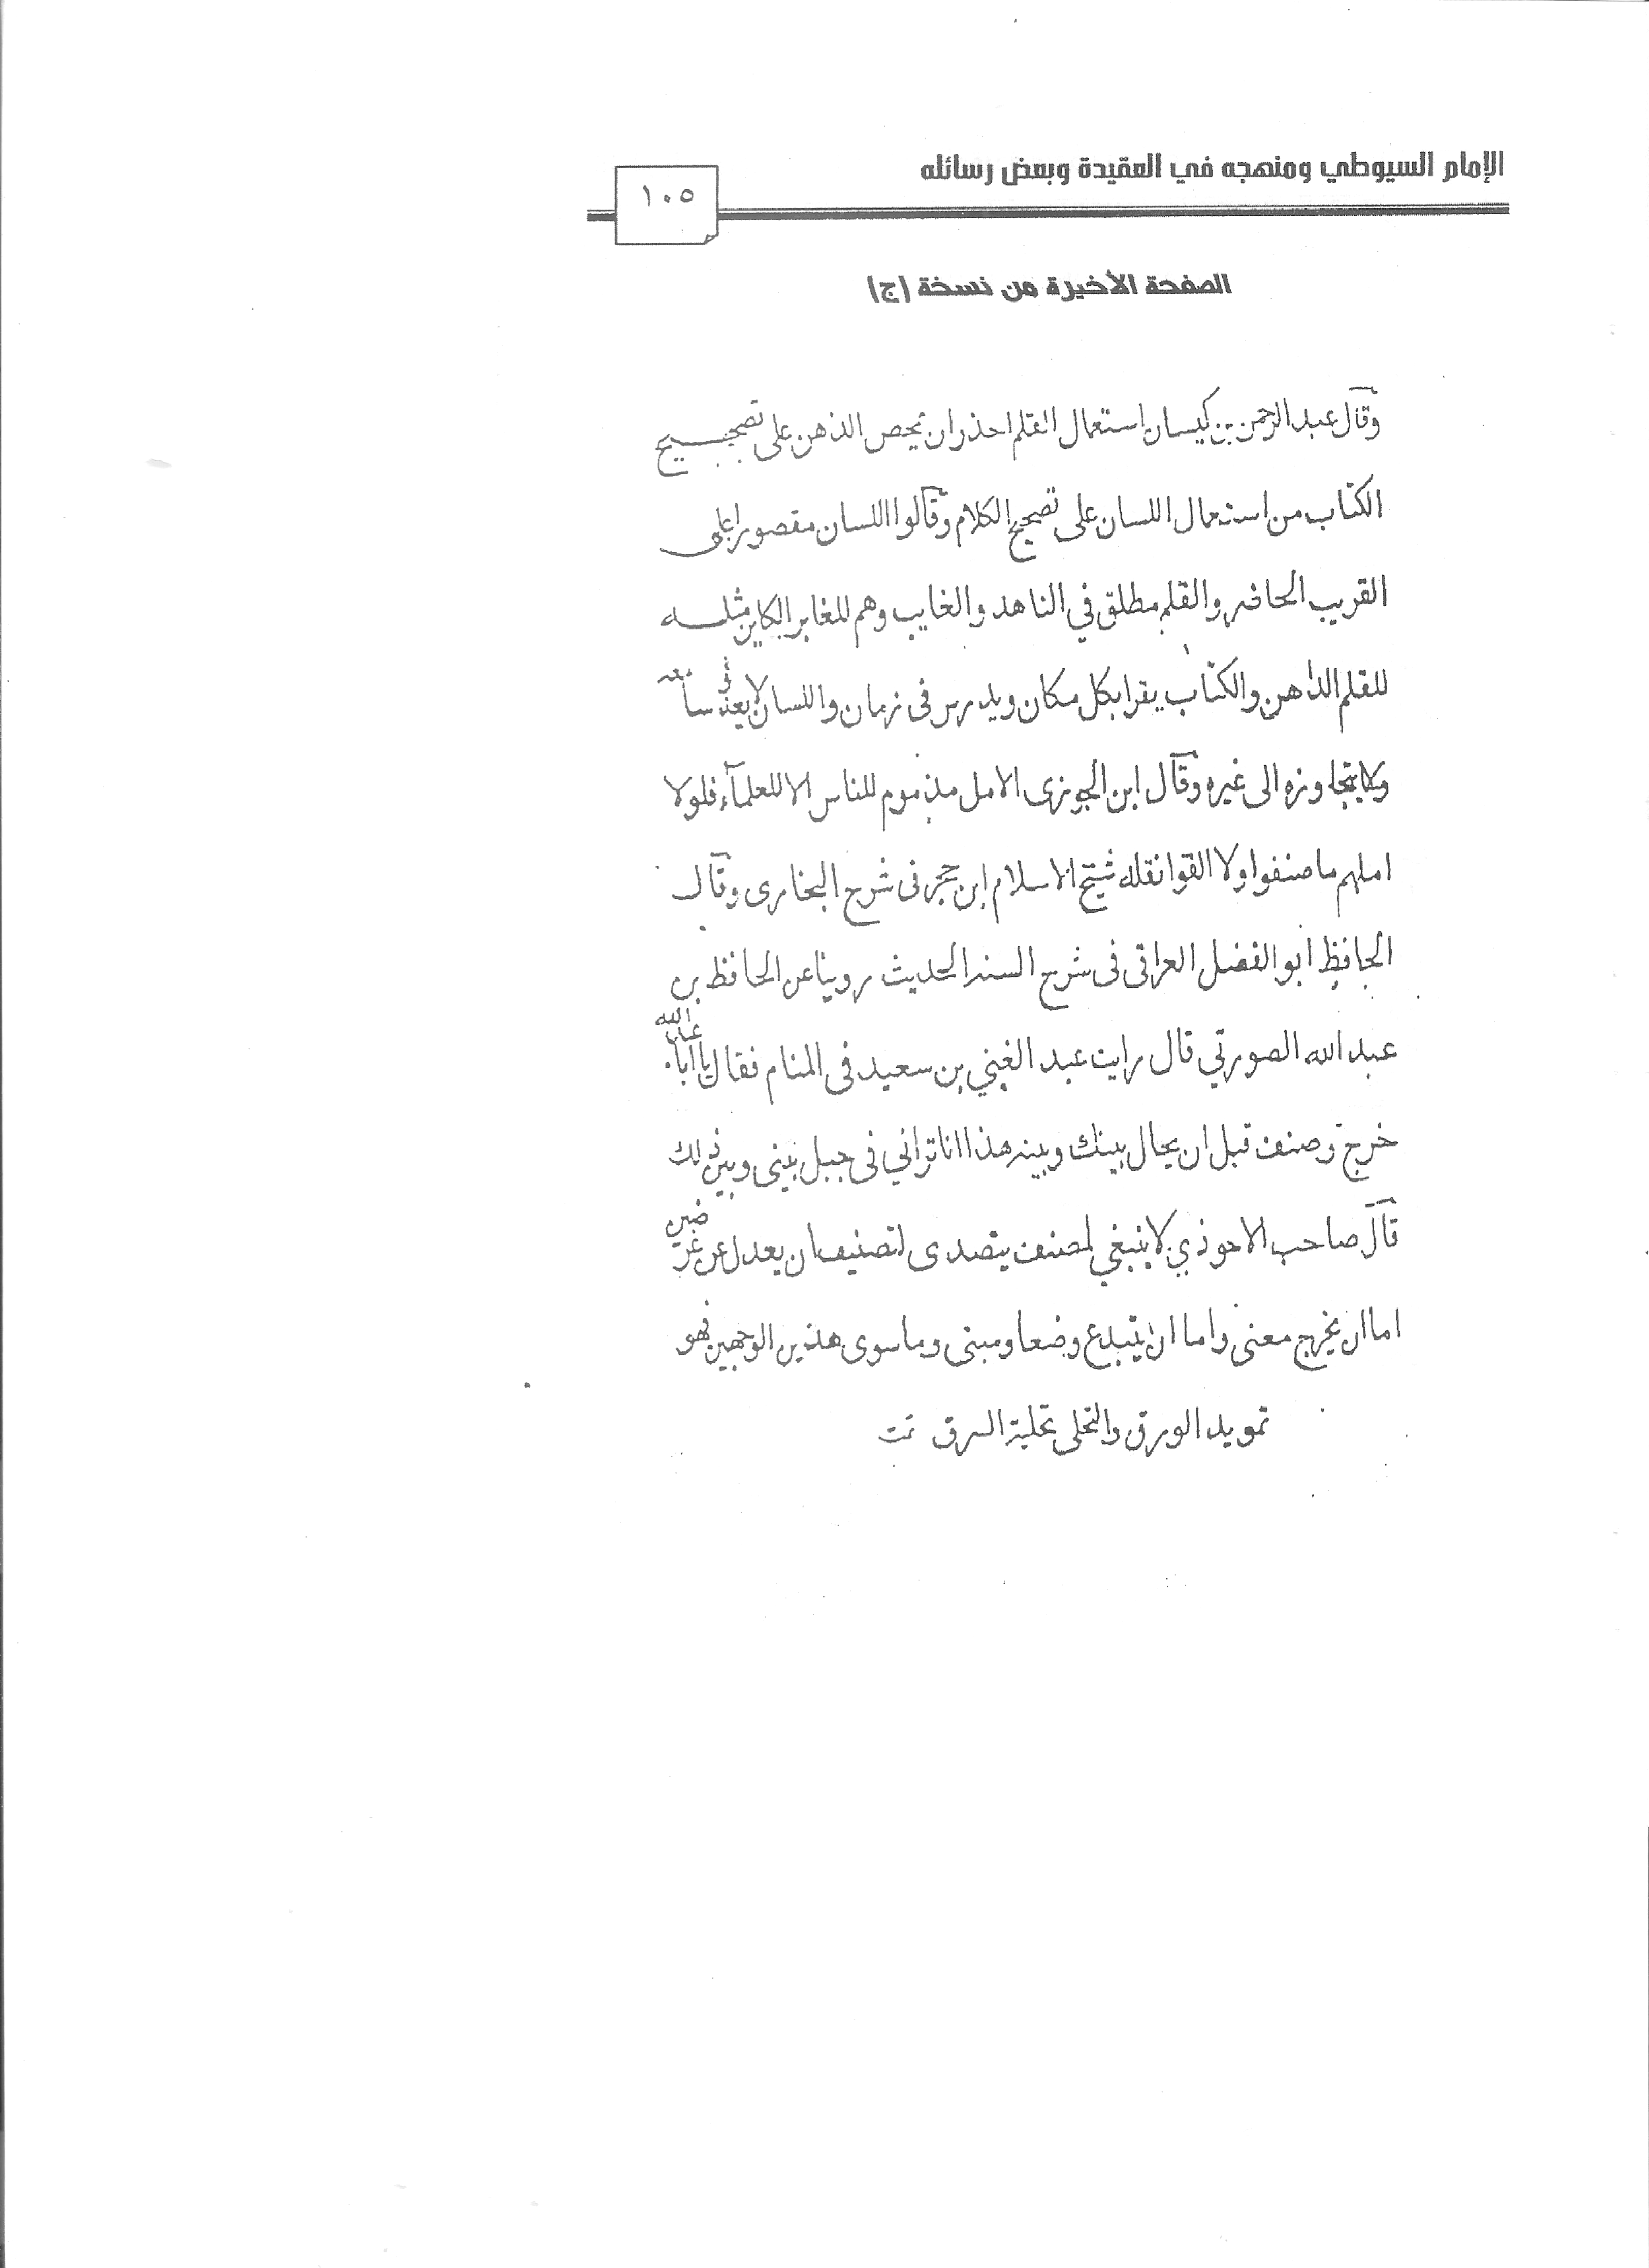 الإمام السيوطي ومنهجه في العقيدة وبعض رسائله
١٠٥
الصفحة الأخيرة من نسخة (ج)
وقال عبد الرحمن بن كيسان استعمال القلم احذر ان يحص الذهن على تصحيح
الكتاب من استعمال اللسان على تصحيح الكلام وقالوا اللسان مقصورا على
القريب الحاضر والقلم مطلق في الشاهد والغايب وهم للغابر الكاين مثله
للقلم الذاهن والكتاب يقرا بكل مكان ويدرس فى زمان واللسان لا يعدو سامعه
ولا يتجاوزه الى غيره وقال ابن الجوزى الامل مذموم للناس الا للعلمآء فلولا
املهم ما صنفوا ولا القوا نقله شيخ الاسلام ابن حجر فى شرح البخارى وقال
الحافظ ابو الفضل العراقى فى شرح السند الحديث روينا عن الحافظ بن
عبد الله الصورتي قال رايت عبد الغني بن سعيد فى المنام فقال يا ابا عبد الله
خرج وصنف قبل ان يحال بينك وبينه هذا انا تراني فى جبل بينى وبين ذلك
قال صاحب الاحوذي لا ينبغي لمصنف يتصدى لتصنيف ان يعدل عن غرضين
اما ان يخرج معنى واما ان يبتدع وضعا ومبنى وما سوى هذين الوجهين فهو
تمويد الورق والتحلى بحلية السرق تمت